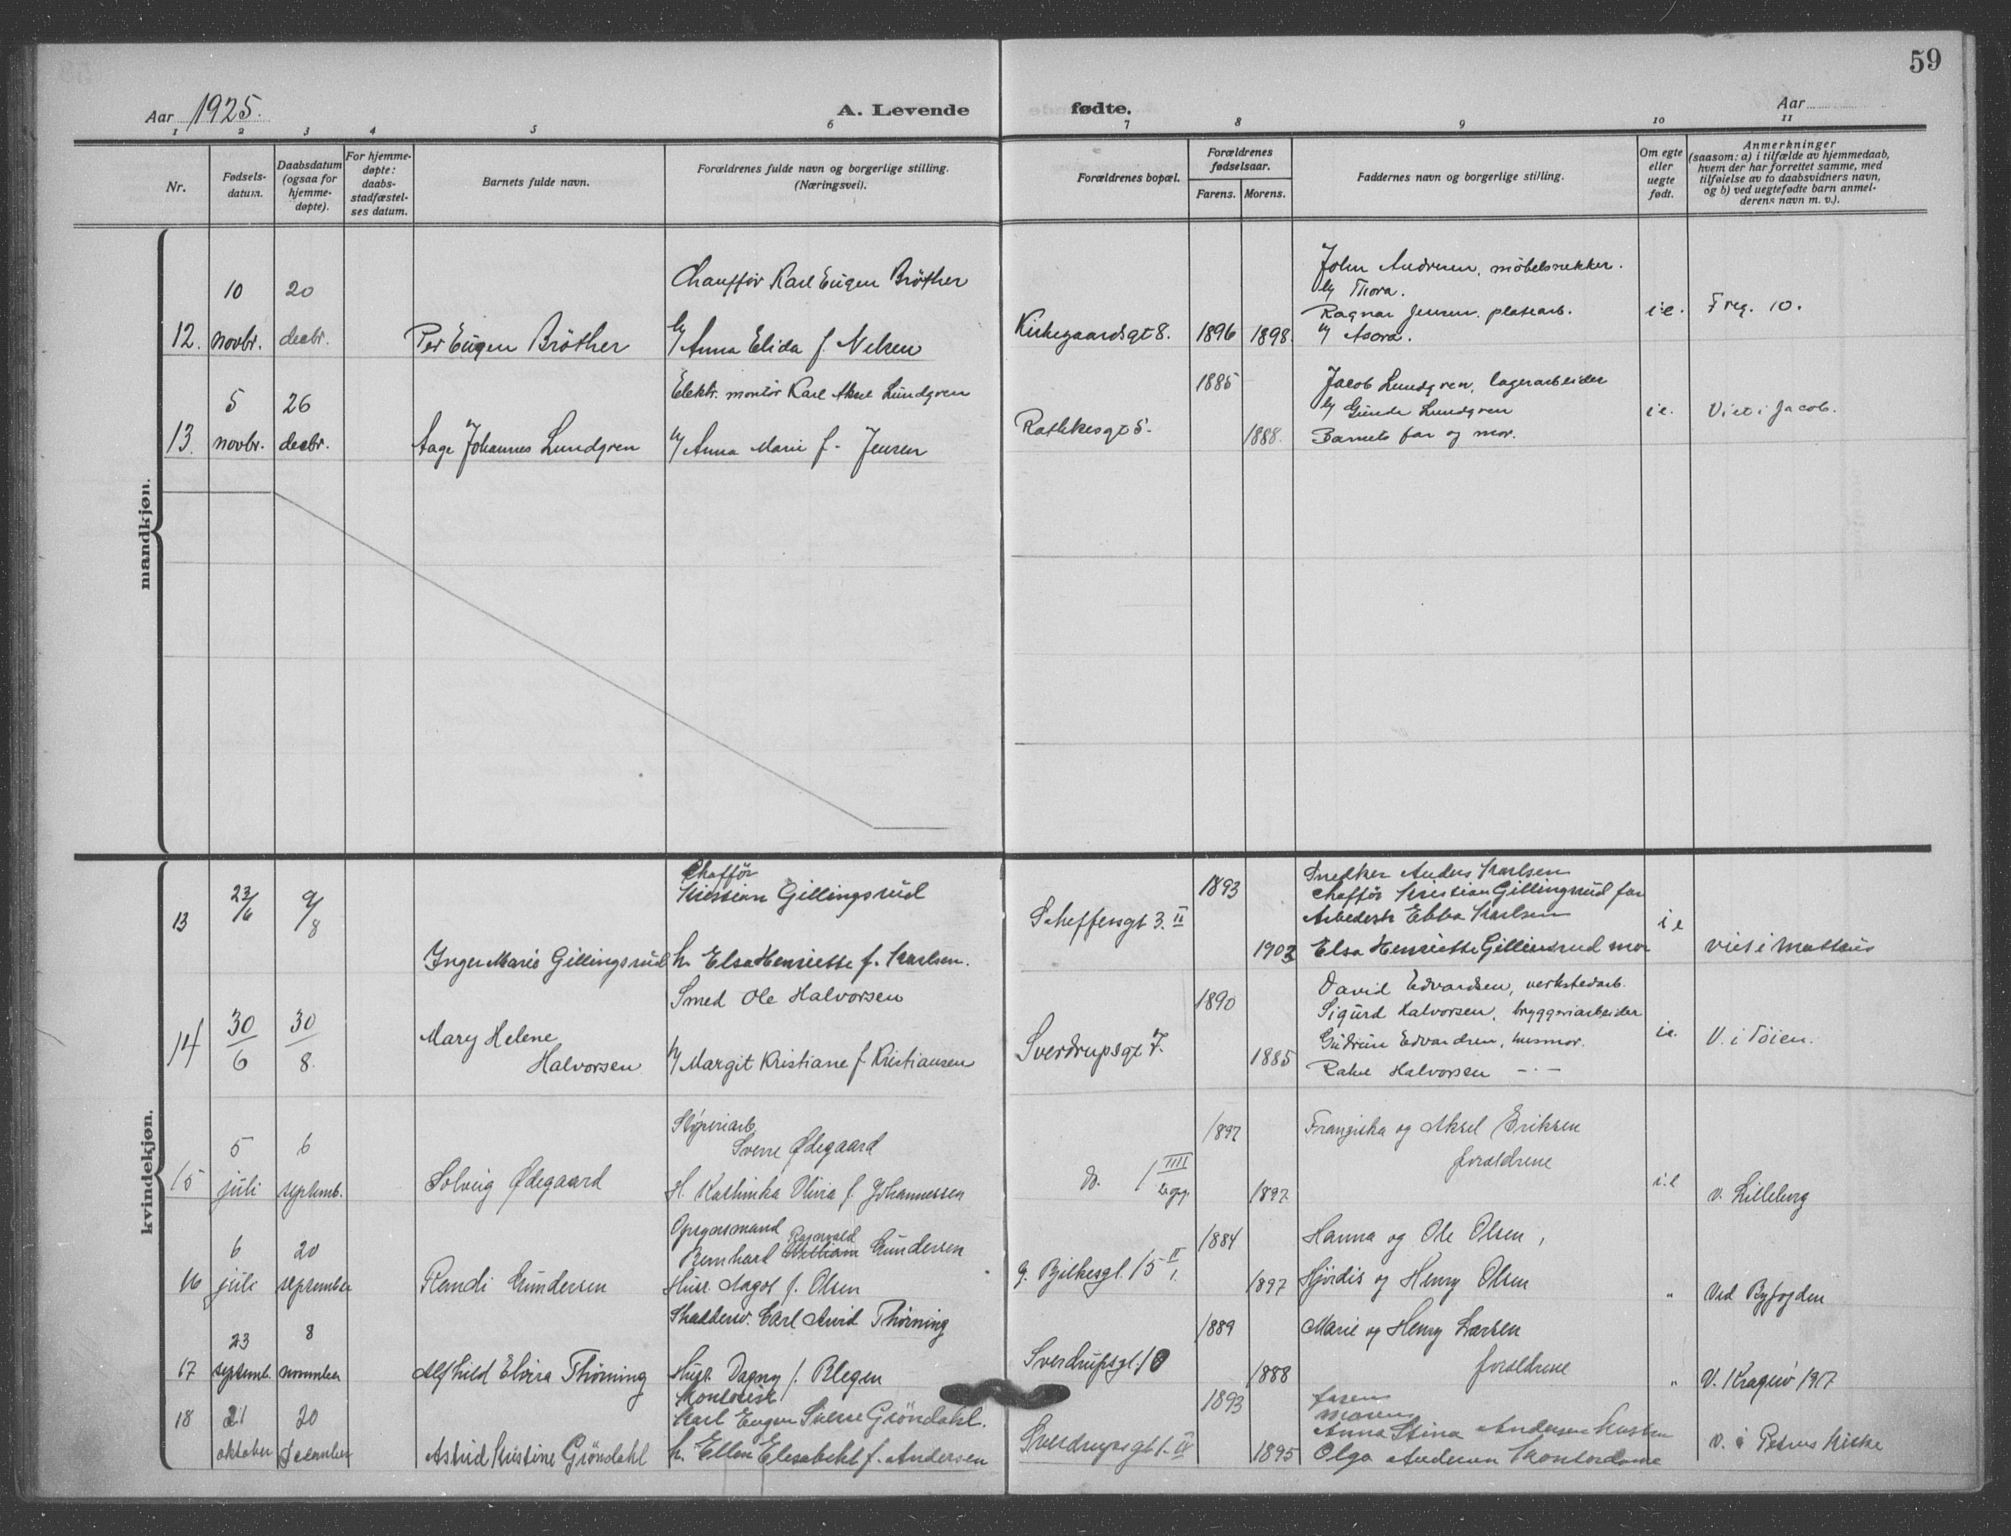 59
Aar 1925.
A. Levende fødte.
Aar
1 2 3 4 5 6 7 8 9 10 11
Nr.
Fødsels-
datum.
Daabsdatum
(ogsaa for
hjemme-
døpte).
For hjemme-
døpte:
daabs-
stadfæstel-
ses datum.
Barnets fulde navn.
Forældrenes fulde navn og borgerlige stilling.
(Næringsvei).
Forældrenes bopæl.
Forældrenes
fødselsaar.
Farens. Morens.
Faddernes navn og borgerlige stilling.
Om egte
eller
uegte
født.
Anmerkninger
(saasom: a) i tilfælde av hjemmedaab,
hvem der har forrettet samme, med
tilføielse av to daabsvidners navn,
og b) ved uegtefødte barn anmel-
derens navn m. v.).
mandkjøn.
12.
10
novbr.
20
decbr.
Per Eugen Bröther
Chaufför Karl Eugen Bröther
h/ Anna Elida f. Nelsen
Kirkegaardsgt 8.
1896 1898.
John Andresen, møbelsnekker.
h/ Thora.
Ragnar Jensen, platearb.
h/ Asora.
i.e.
Freg. 10.
13.
5
novbr.
26
decbr.
Aage Johannes Lundgren
Elektr. montör Karl Aksel Lundgren
h/ Anna Marie f. Jensen
Rathkesgt 5.
1885
1888.
Jacob Lundgren, lagerarbeider
h/ Gunda Lundgren
Barnets far og mor.
i.e.
Viet i Jacob.
kvindekjøn.
13
23/6
9/8
Inger Marie Gillingsrud
Chafför
Kristian Gillingsrud
h. Elsa Henriette f. Karlsen.
Scheffersgt 3. II
1893
1903
Snedker Anders Karlsen
Chafför Kristian Gillingsrud far
Arbederske Ebba Karlsen
Elsa Henriette Gillinsrud mor
i e
viet i Mattæus
14
30/6
30/8.
Mary Helene
Halvorsen
Smed Ole Halvorsen
h/ Margit Kristiane f. Kristiansen
Sverdrupsgt 7.
1890
1885
David Edvardsen, verkstedarb.
Sigurd Halvorsen, bryggeriarbeider
Gudrun Edvardsen, husmor.
Rakel Halvorsen -"-
i.e.
V. i Töien.
15
5
juli
6
septemb.
Solveig Ødegaard
Støperiarb.
Sverre Ødegaard
H. Kathinka Olivia f. Johannessen
do. 1 IIII
1897
1897
Franziska og Aksel Eriksen
forældrene
i.e
v. Lilleborg
16
6
juli
20
september
Randi Gundersen
Opsynsmand
Bernhard Ragnvald Gundersen
Hustr. Aagot f. Olsen
G. Bilkesgt. 15 II
1.
1884
1897
Hanna og Ole Olsen,
Hjördis og Henry Olsen
"
Ved Byfogden
17
23
septemb.
8
november
Alfhild Elvira Thörning
Skredderm. Carl Arvid Thörning
Hustr. Dagny f. Blegen
Sverdrupsgt. 10
1889
1888
Marie og Henry Larsen
forældrene
"
V. Kragerö 1917
18
21
oktober
20
December
Astrid Kristine Gröndahl
Kontorist
Karl Eugen Sverre Gröndahl.
h. Ellen Elisabeht f. Andersen
Sverdrupsgt 1. IV
1893
1895
faren
moren
Anna Stina Andersen Hustru
Olga Andersen Kontordame
v. i Petrus Kirke